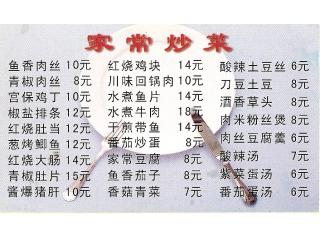 家常炒菜
鱼香肉丝 10元 红烧鸡块 14元 酸辣土豆丝 6元
青椒肉丝 8元 川味回锅肉 10元 刀豆土豆 8元
宫保鸡丁 10元 水煮鱼片 14元 酒香草头 8元
椒盐排条 12元 水煮牛肉 18元 肉米粉丝煲 8元
红烧肚当 12元 干煎带鱼 14元 肉丝豆腐羹 6元
葱烤鲫鱼 12元 番茄炒蛋 8元 酸辣汤 7元
红烧大肠 14元 家常豆腐 8元 紫菜蛋汤 6元
青椒肚片 15元 鱼香茄子 8元 番茄蛋汤 6元
酱爆猪肝 10元 香菇青菜 7元